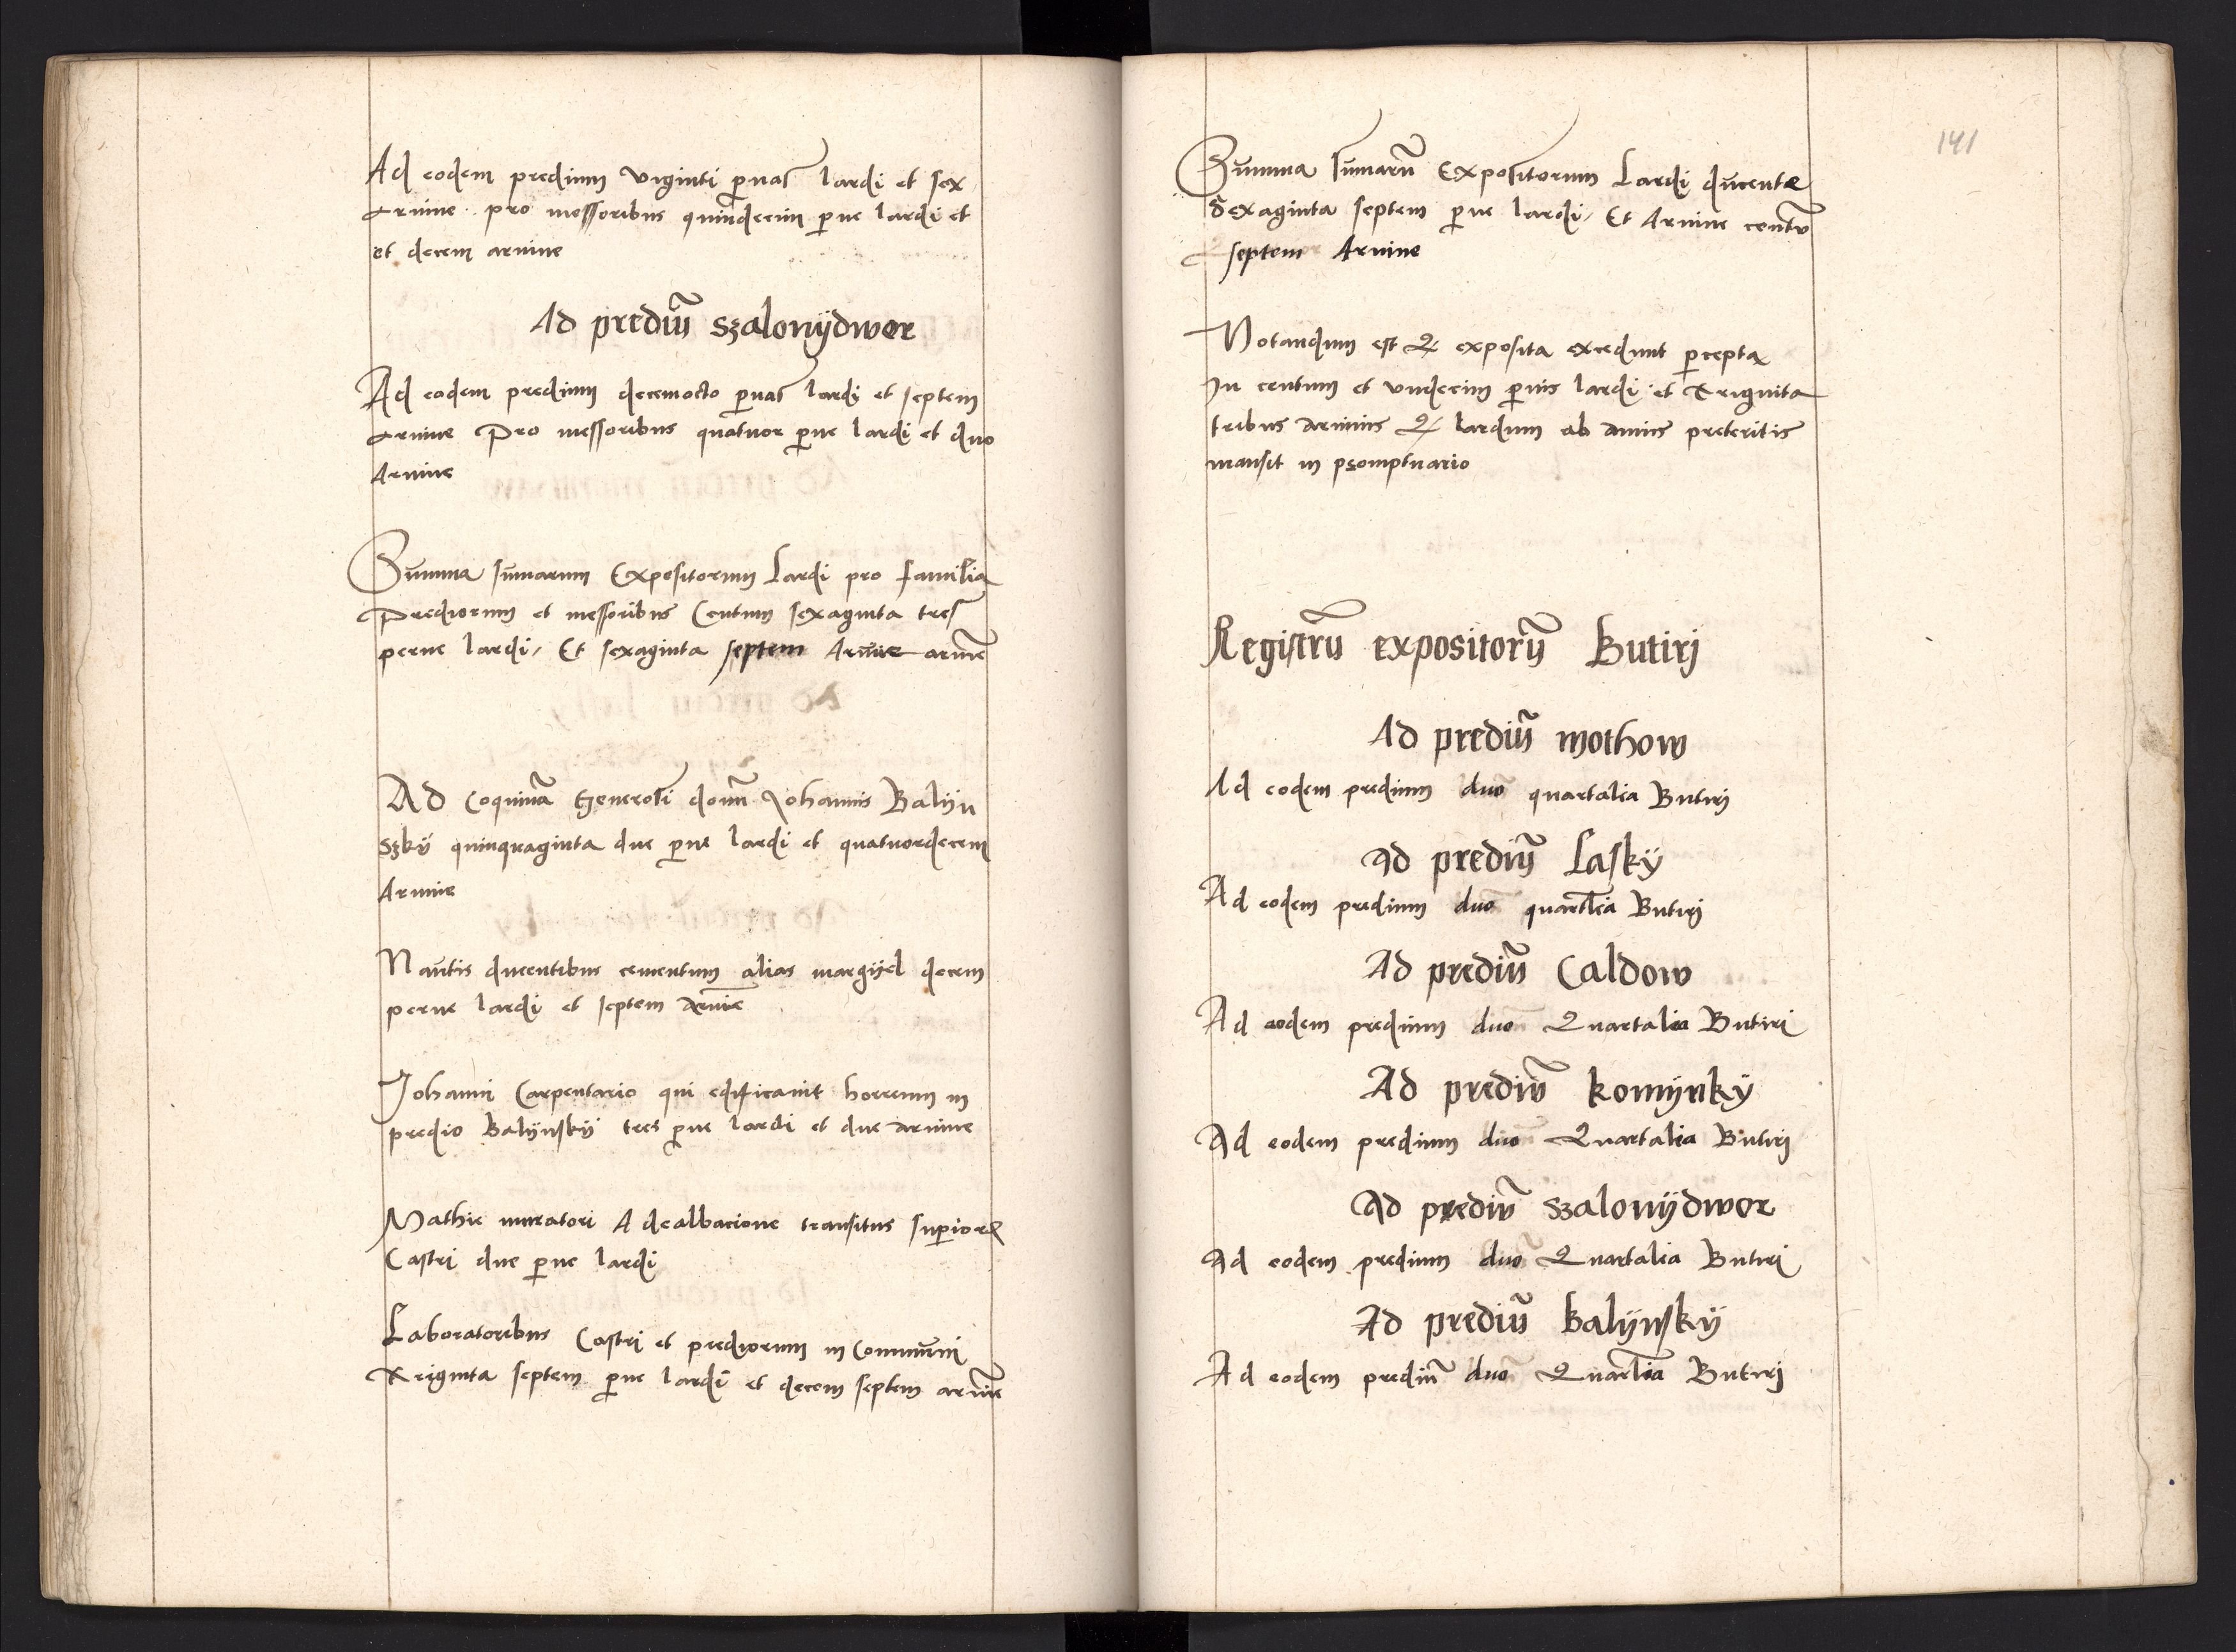 Ad eodem predium viginti pernas lardi et sex
arvine pro messoribus quindecim perne lardi et
et decem arvine
Ad prediū szalonÿdwor
Ad eodem predium decemocto pernas lardi et septem
arvine pro messoribus quatuor perne lardi et duo
Arvine
Summa sumarum Expositorum Lardi pro familia
Prediorum et messoribus Centum sexaginta tres
perne lardi, Et sexaginta septem arvine
Ad Coquinā Generosi domī Johannis Balÿn
szkÿ quinquaginta due perne lardi et quatuordecem
Arvine
Nautis ducentibus cementum alias margÿel decem
perne lardi et septem arvine
Johanni Carpentario qui edificavit horreum in
predio Balÿnskÿ tres perne lardi et due arvine
Mathie muratori A dealbacione transitus superioris
Castri due perne lardi
Laboratoribus Castri et prediorum in Communi
Triginta septem perne lardi et decem septem arvine
141
Summa sumarū Expositorum Lardi ducente
Sexaginta septem perne lardi, Et Arvine centū
septem Arvine
Notandum est Q exposita excedunt percepta
In centum et undecim pernis lardi et Triginta
tribus arvinis Q lardum ab annis preteritis
mansit in promptuario
Registrū expositorū Butirj
Ad prediū mothow
Ad eodem predium duo quartalia Butirj
Ad prediū Laskÿ
Ad eodem predium duo quartalia Butirj
Ad prediū Caldow
Ad eodem predium duo Quartalia Butiri
Ad prediū komÿnkÿ
Ad eodem predium duo Quartalia Butirj
Ad prediū szalonÿdwor
Ad eodem predium duo Quartalia Butiri
Ad prediū balÿnskÿ
Ad eodem prediū duo Quartalia Butirj